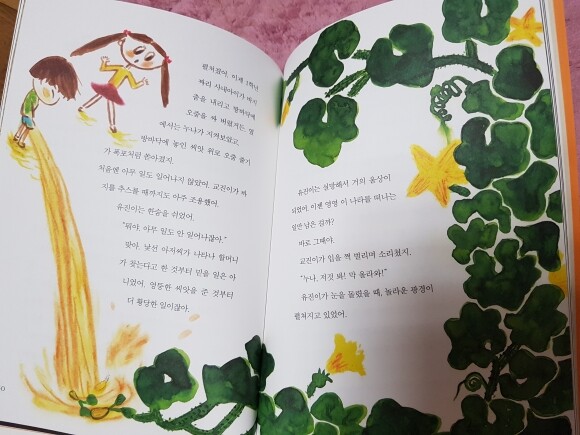 펼쳐졌어. 이제 1학년
짜리 사내아이가 바지
춤을 내리고 방바닥에
오줌을 싸 버렸거든. 옆
에서는 누나가 지켜보았고.
방바닥에 놓인 씨앗 위로 오줌 줄기
가 폭포처럼 쏟아졌지.
처음엔 아무 일도 일어나지 않았어. 교진이가 바
지를 추스를 때까지도 아주 조용했어.
유진이는 한숨을 쉬었어.
"뭐야. 아무 일도 안 일어나잖아."
맞아. 낯선 아저씨가 나타나 할머니
가 찾는다고 한 것부터 믿을 일은 아
니었어. 엉뚱한 씨앗을 준 것부터
더 황당한 일이잖아.
유진이는 실망해서 거의 울상이
되었어. 이젠 영영 이 나라를 떠나는
일만 남은 걸까?
바로 그때야.
교진이가 입을 쩍 벌리며 소리쳤지.
"누나, 저것 봐! 막 올라와!"
유진이가 눈을 돌렸을 때, 놀라운 광경이
펼쳐지고 있었어.